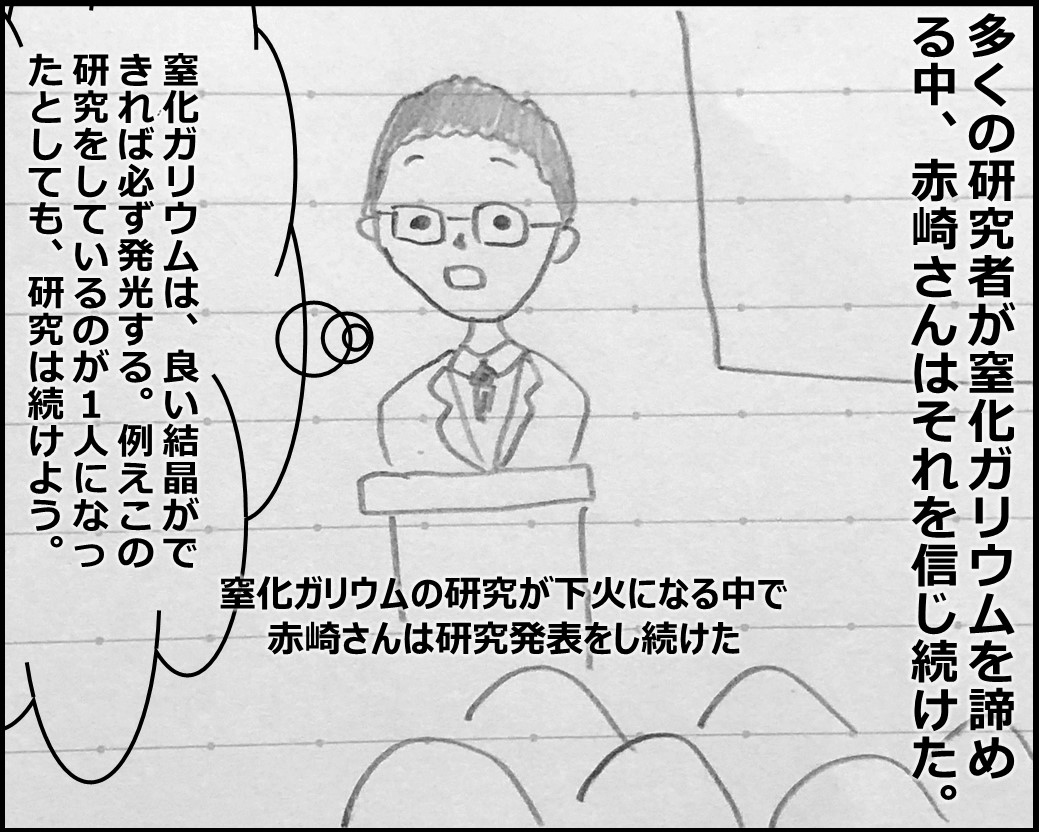 多くの研究者が窒化ガリウムを諦め
る中、赤崎さんはそれを信じ続けた。
窒化ガリウムは、良い結晶がで
きれば必ず発光する。例えこの
研究をしているのが1人になっ
たとしても、研究は続けよう。
窒化ガリウムの研究が下火になる中で
赤崎さんは研究発表をし続けた